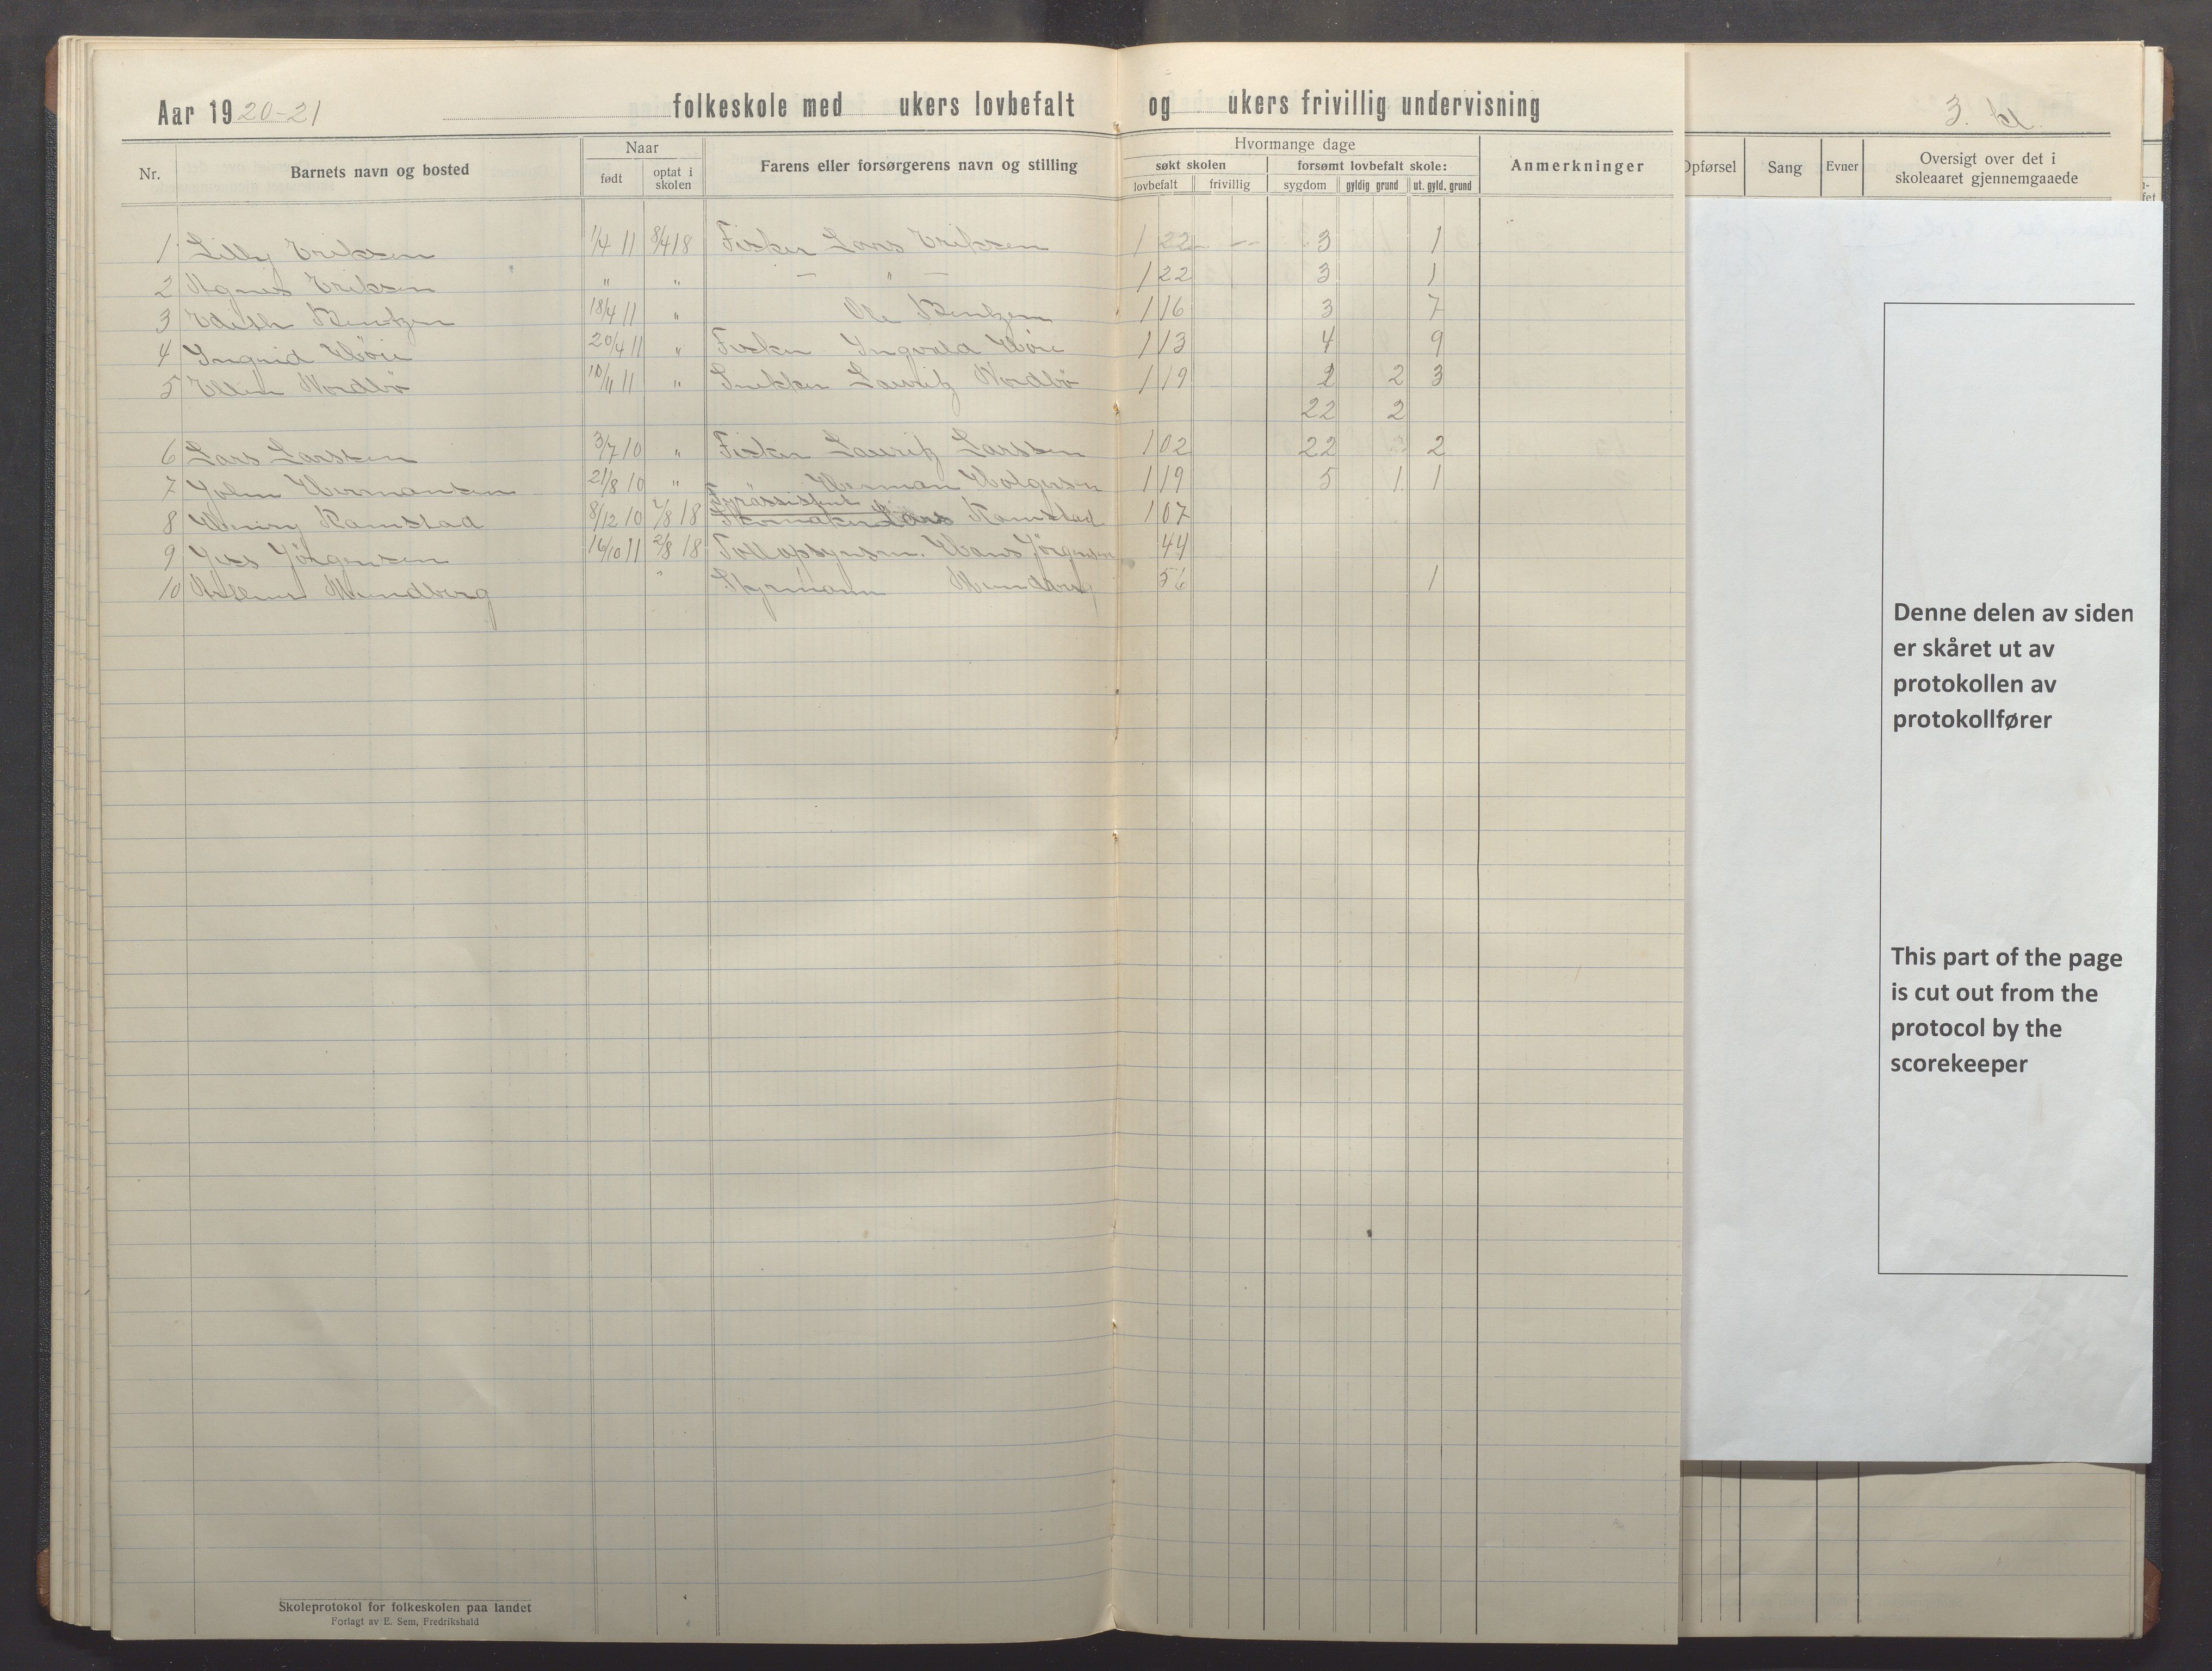 Aar 1920-21 folkeskole med ukers lovbefalt og ukers frivillig undervisning
3. kl.
Nr. Barnets navn og bosted Naar født optat i skolen Farens eller forsørgerens navn og stilling Hvormange dage søkt skolen lovbefalt frivillig forsømt lovbefalt skole: sygdom gyldig grund ut. gyld. grund Anmerkninger
Opførsel Sang Evner Oversigt over det i skoleaaret gjennemgaaede
1 Lilly Eriksen 1/4 11 8/4 18 Fisker Lars Eriksen 122 - -- 3 1
2 Agnes Eriksen " " — " — 122 3 1
3 Edith Bentzen 18/4 11 " Ole Bentzen 116 3 7
4 Ingrid Høie 20/4 11 " Fisker Ingvald Høie 113 4 9
5 Ellen Nordbø 10/4 11 " Snekker Lauritz Nordbø 119 2 2 3
22 2
6 Lars Larsen 3/7 10 " Fisker Lauritz Larsen 102 22 2
7 John Hermansen 21/8 10 " Herman Holgersen 119 5 1 1
Fyrassistent
8 Henry Ramstad 8/12 10 2/8 18 Skomaker Lars Ramstad 107
9 Jess Jörgensen 16/10 11 2/8 18 Tollopsynsm. Hans Jörgensen 44
10 Mundberg " Styrmann Mundberg 56 1
Denne delen av siden
er skåret ut av
protokollen av
protokollfører
This part of the page
is cut out from the
protocol by the
scorekeeper
Skoleprotokol for folkeskolen paa landet
Forlagt av E. Sem, Fredrikshald